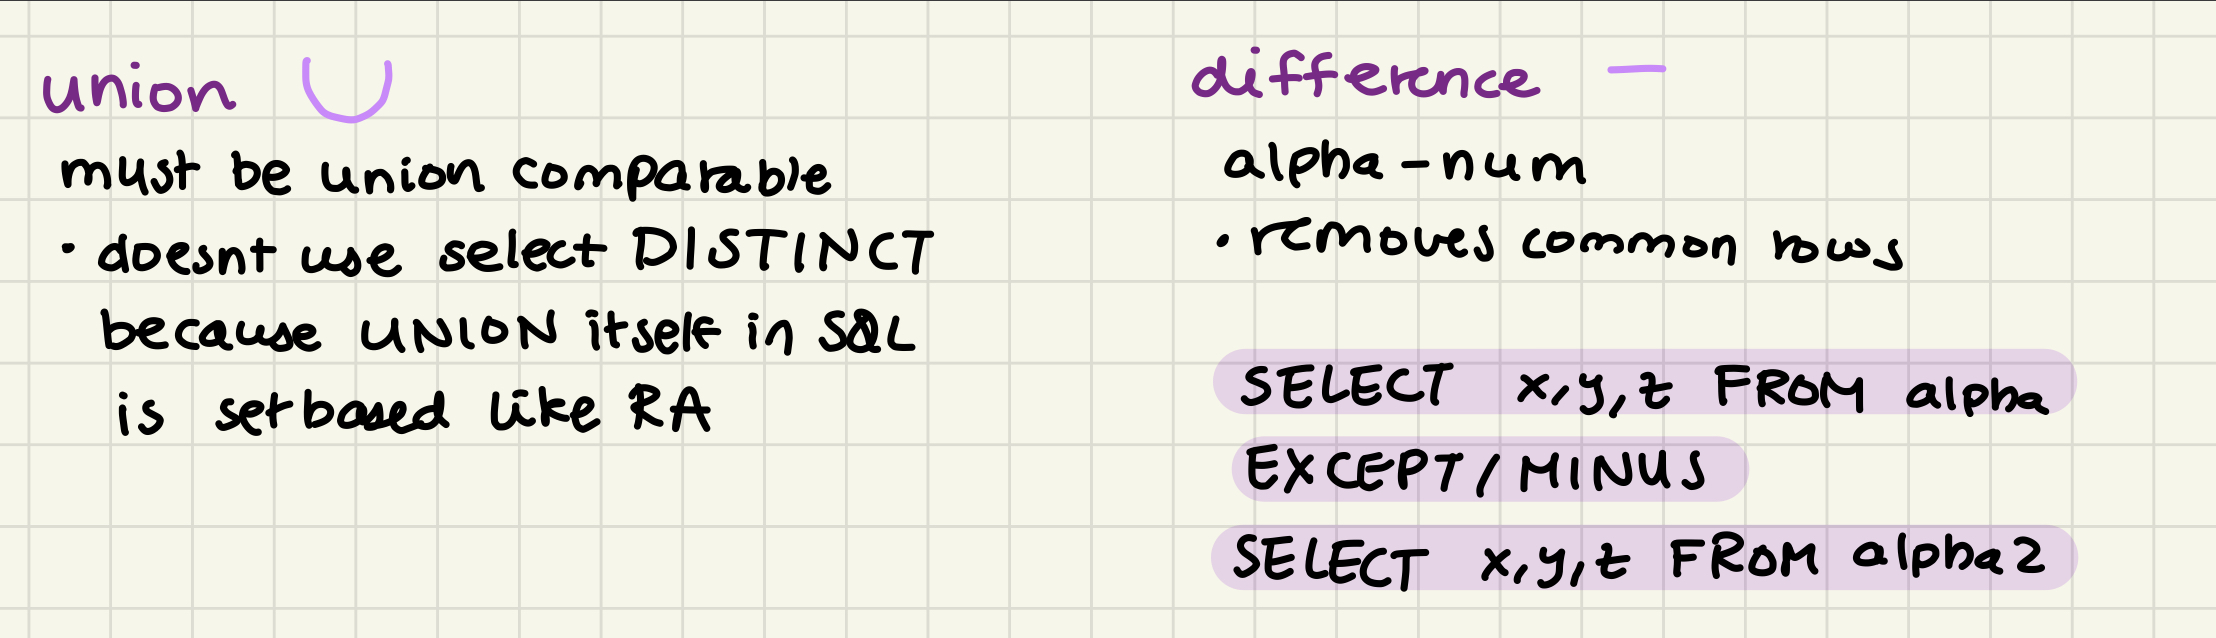 union ∪
must be union comparable
· doesnt use select DISTINCT
because UNION itself in SQL
is setbased like RA
difference —
alpha - num
· removes common rows
SELECT x,y,z FROM alpha
EXCEPT/MINUS
SELECT x,y,z FROM alpha2